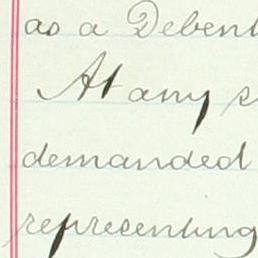 as a Debent
At any s
demanded
representing